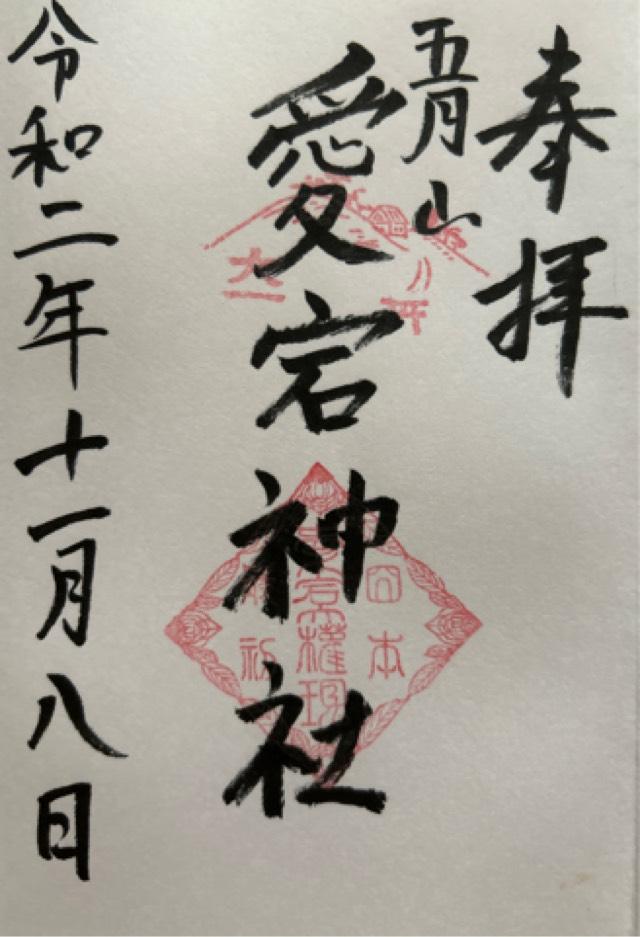 奉拝
五月山
愛宕神社
大一
日本
愛宕權現
令和二年十一月八日